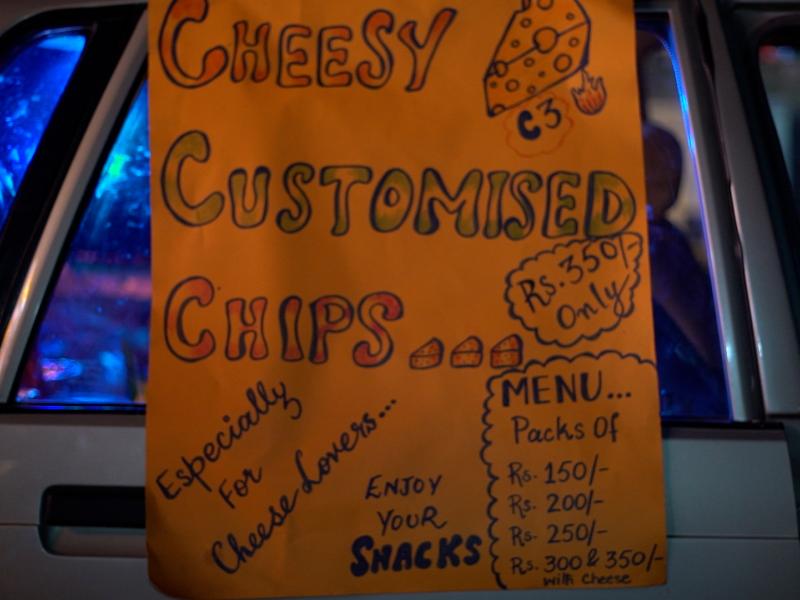 CHEESY
C3
CUSTOMISED
Rs. 350/-
Only
CHIPS...
Especially
For
Cheese Lovers...
ENJOY
YOUR
SNACKS
MENU...
Packs Of
Rs. 150/-
Rs. 200/-
Rs. 250/-
Rs. 300 & 350/-
with Cheese